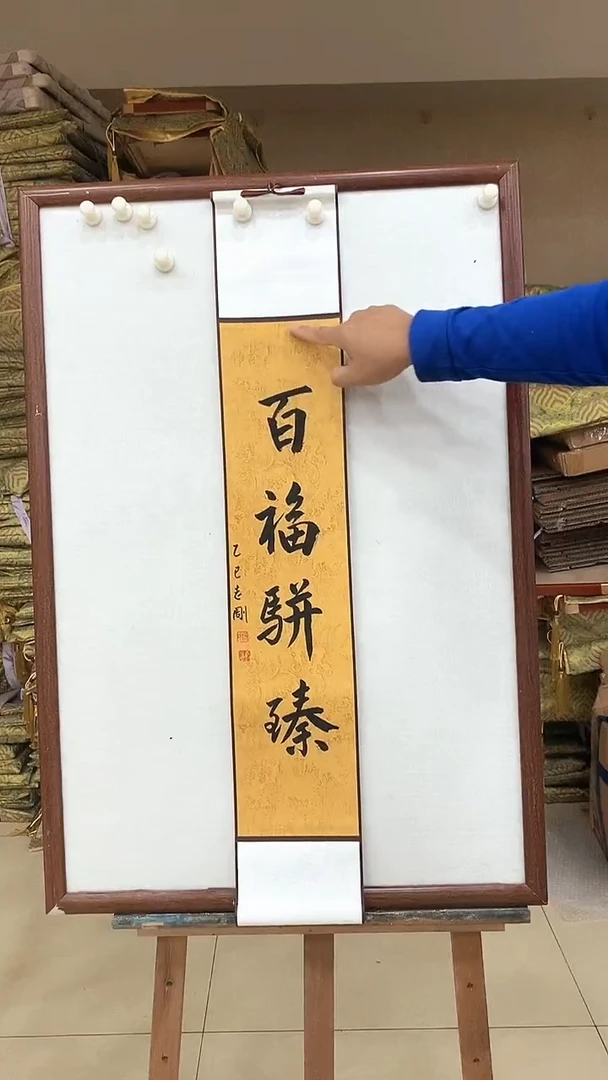 百福駢臻
乙巳志剛